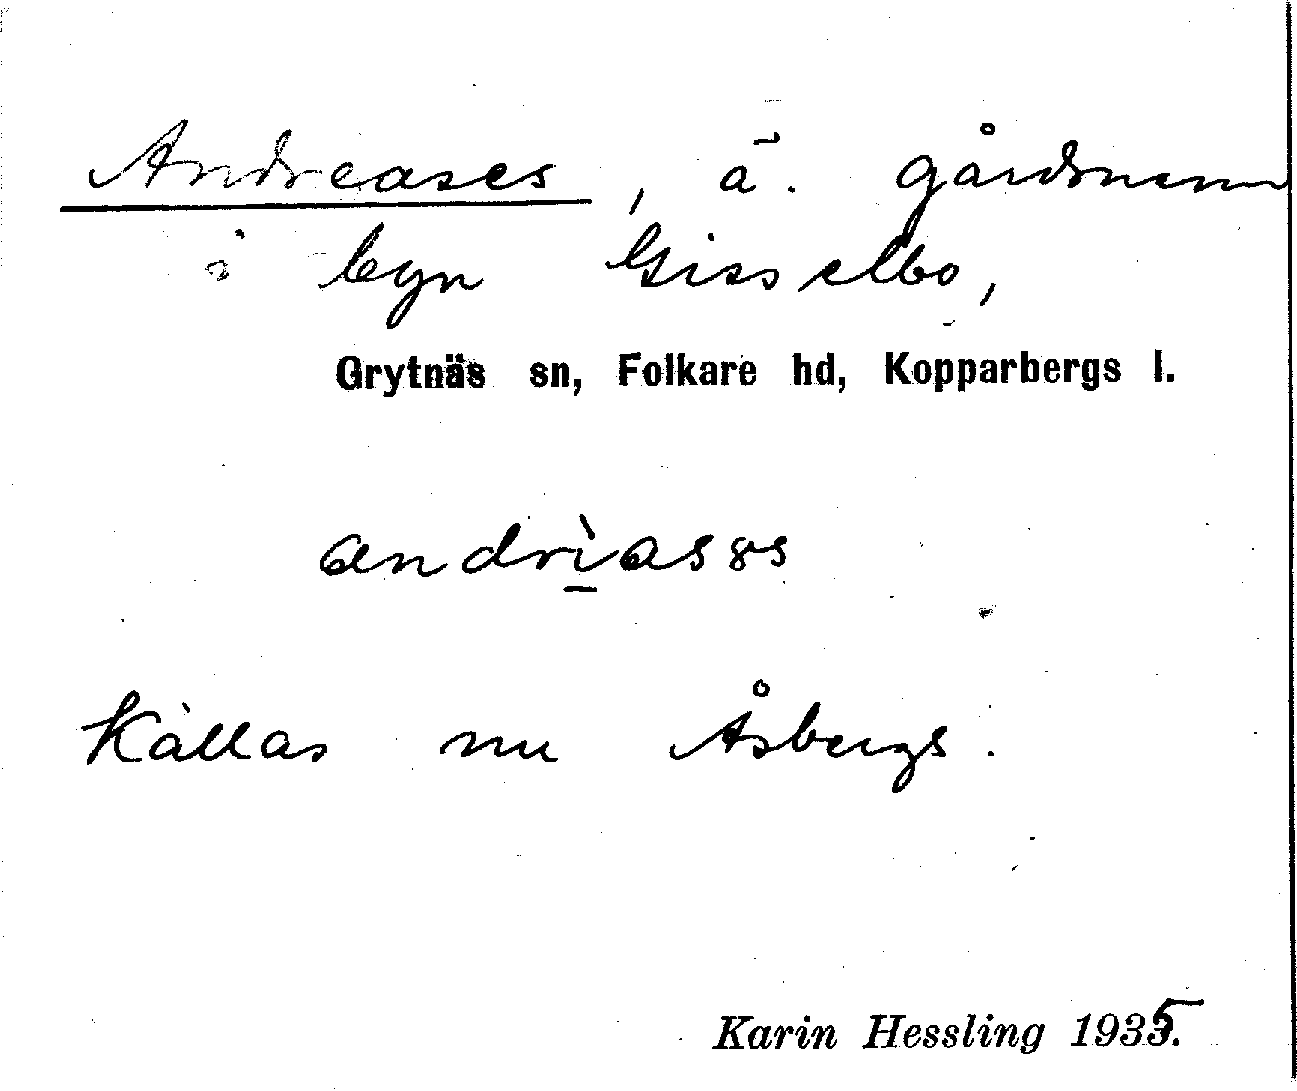 Andreases, ä. gårdsnamn
i byn Gisselbo,
Grytnäs sn, Folkare hd, Kopparbergs l.
andrìasəs
Kallas nu Åsbergs.
Karin Hessling 1935.